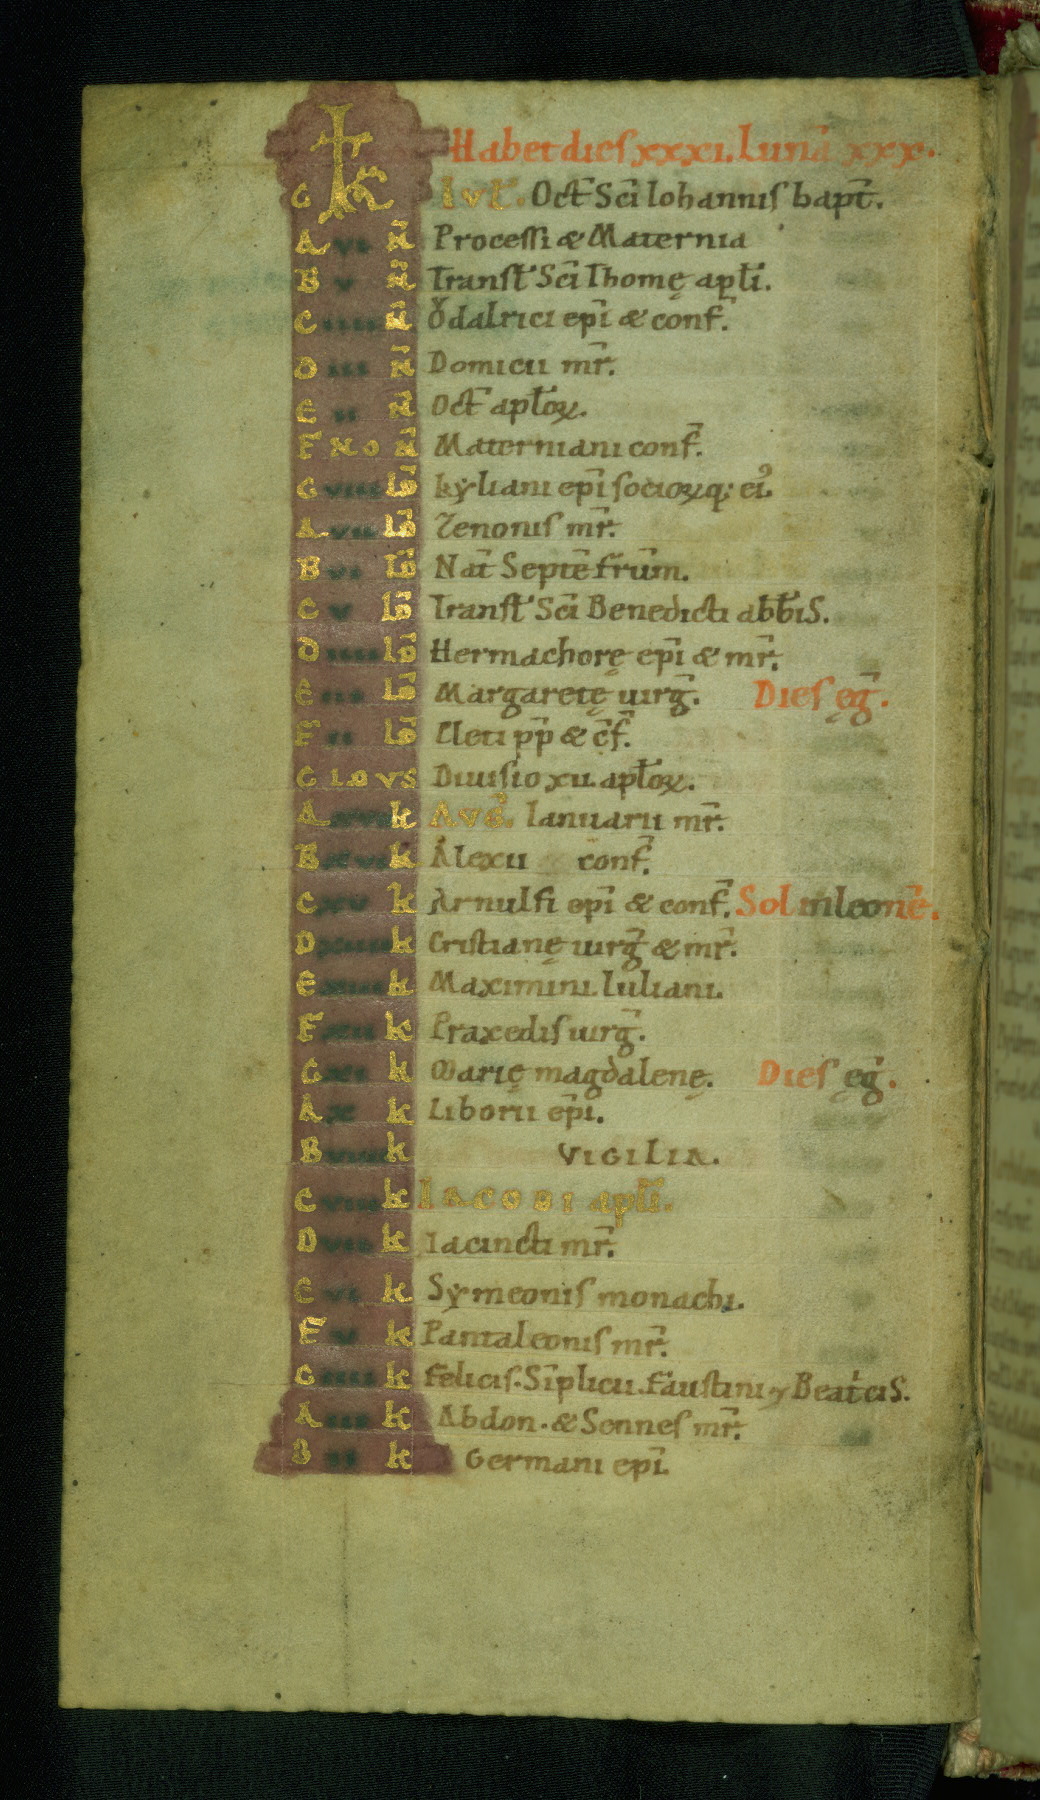 Habet dies xxxi. Luna xxx.
G KL IVL. Oct Sci Iohannis bapt.
A vi N Processi & Maternia
B v N Transl Sci Thomę apli.
C iiii N Ǒdalrici epi & conf.
D iii N Domicii mr.
E ii N Oct aploꝝ.
F NO N Materniani conf.
G viii ID kyliani epi socioꝝq; ei'.
A vii ID Zenonis mr.
B vi ID Nat Septe frum.
C v ID Transl Sci Benedicti abbis.
D iiii ID Hermachorę epi & mr.
E iii ID Margaretę uirg. Dies ęg.
F ii ID Cleti pp & cf.
G IDVS Diuisio xii aploꝝ.
A xvii k AVG. Ianuarii mr.
B xvi k Alexii conf.
C xv k Arnulfi epi & conf. Sol in leone.
D xiiii k Cristianę uirg & mr.
E xiii k Maximini. Iuliani.
F xii k Praxedis uirg.
G xi k Marię magdalenę. Dies ęg.
A x k Liborii epi.
B viiii k VIGILIA.
C viii k IACOBI apli.
D vii k Iacincti mr.
E vi k Symeonis monachi.
F v k Pantaleonis mr.
G iiii k Felicis. Siplicii. Faustini ⁊ Beatcis.
A iii k Abdon. & Sennes mr.
B ii k Germani epi.